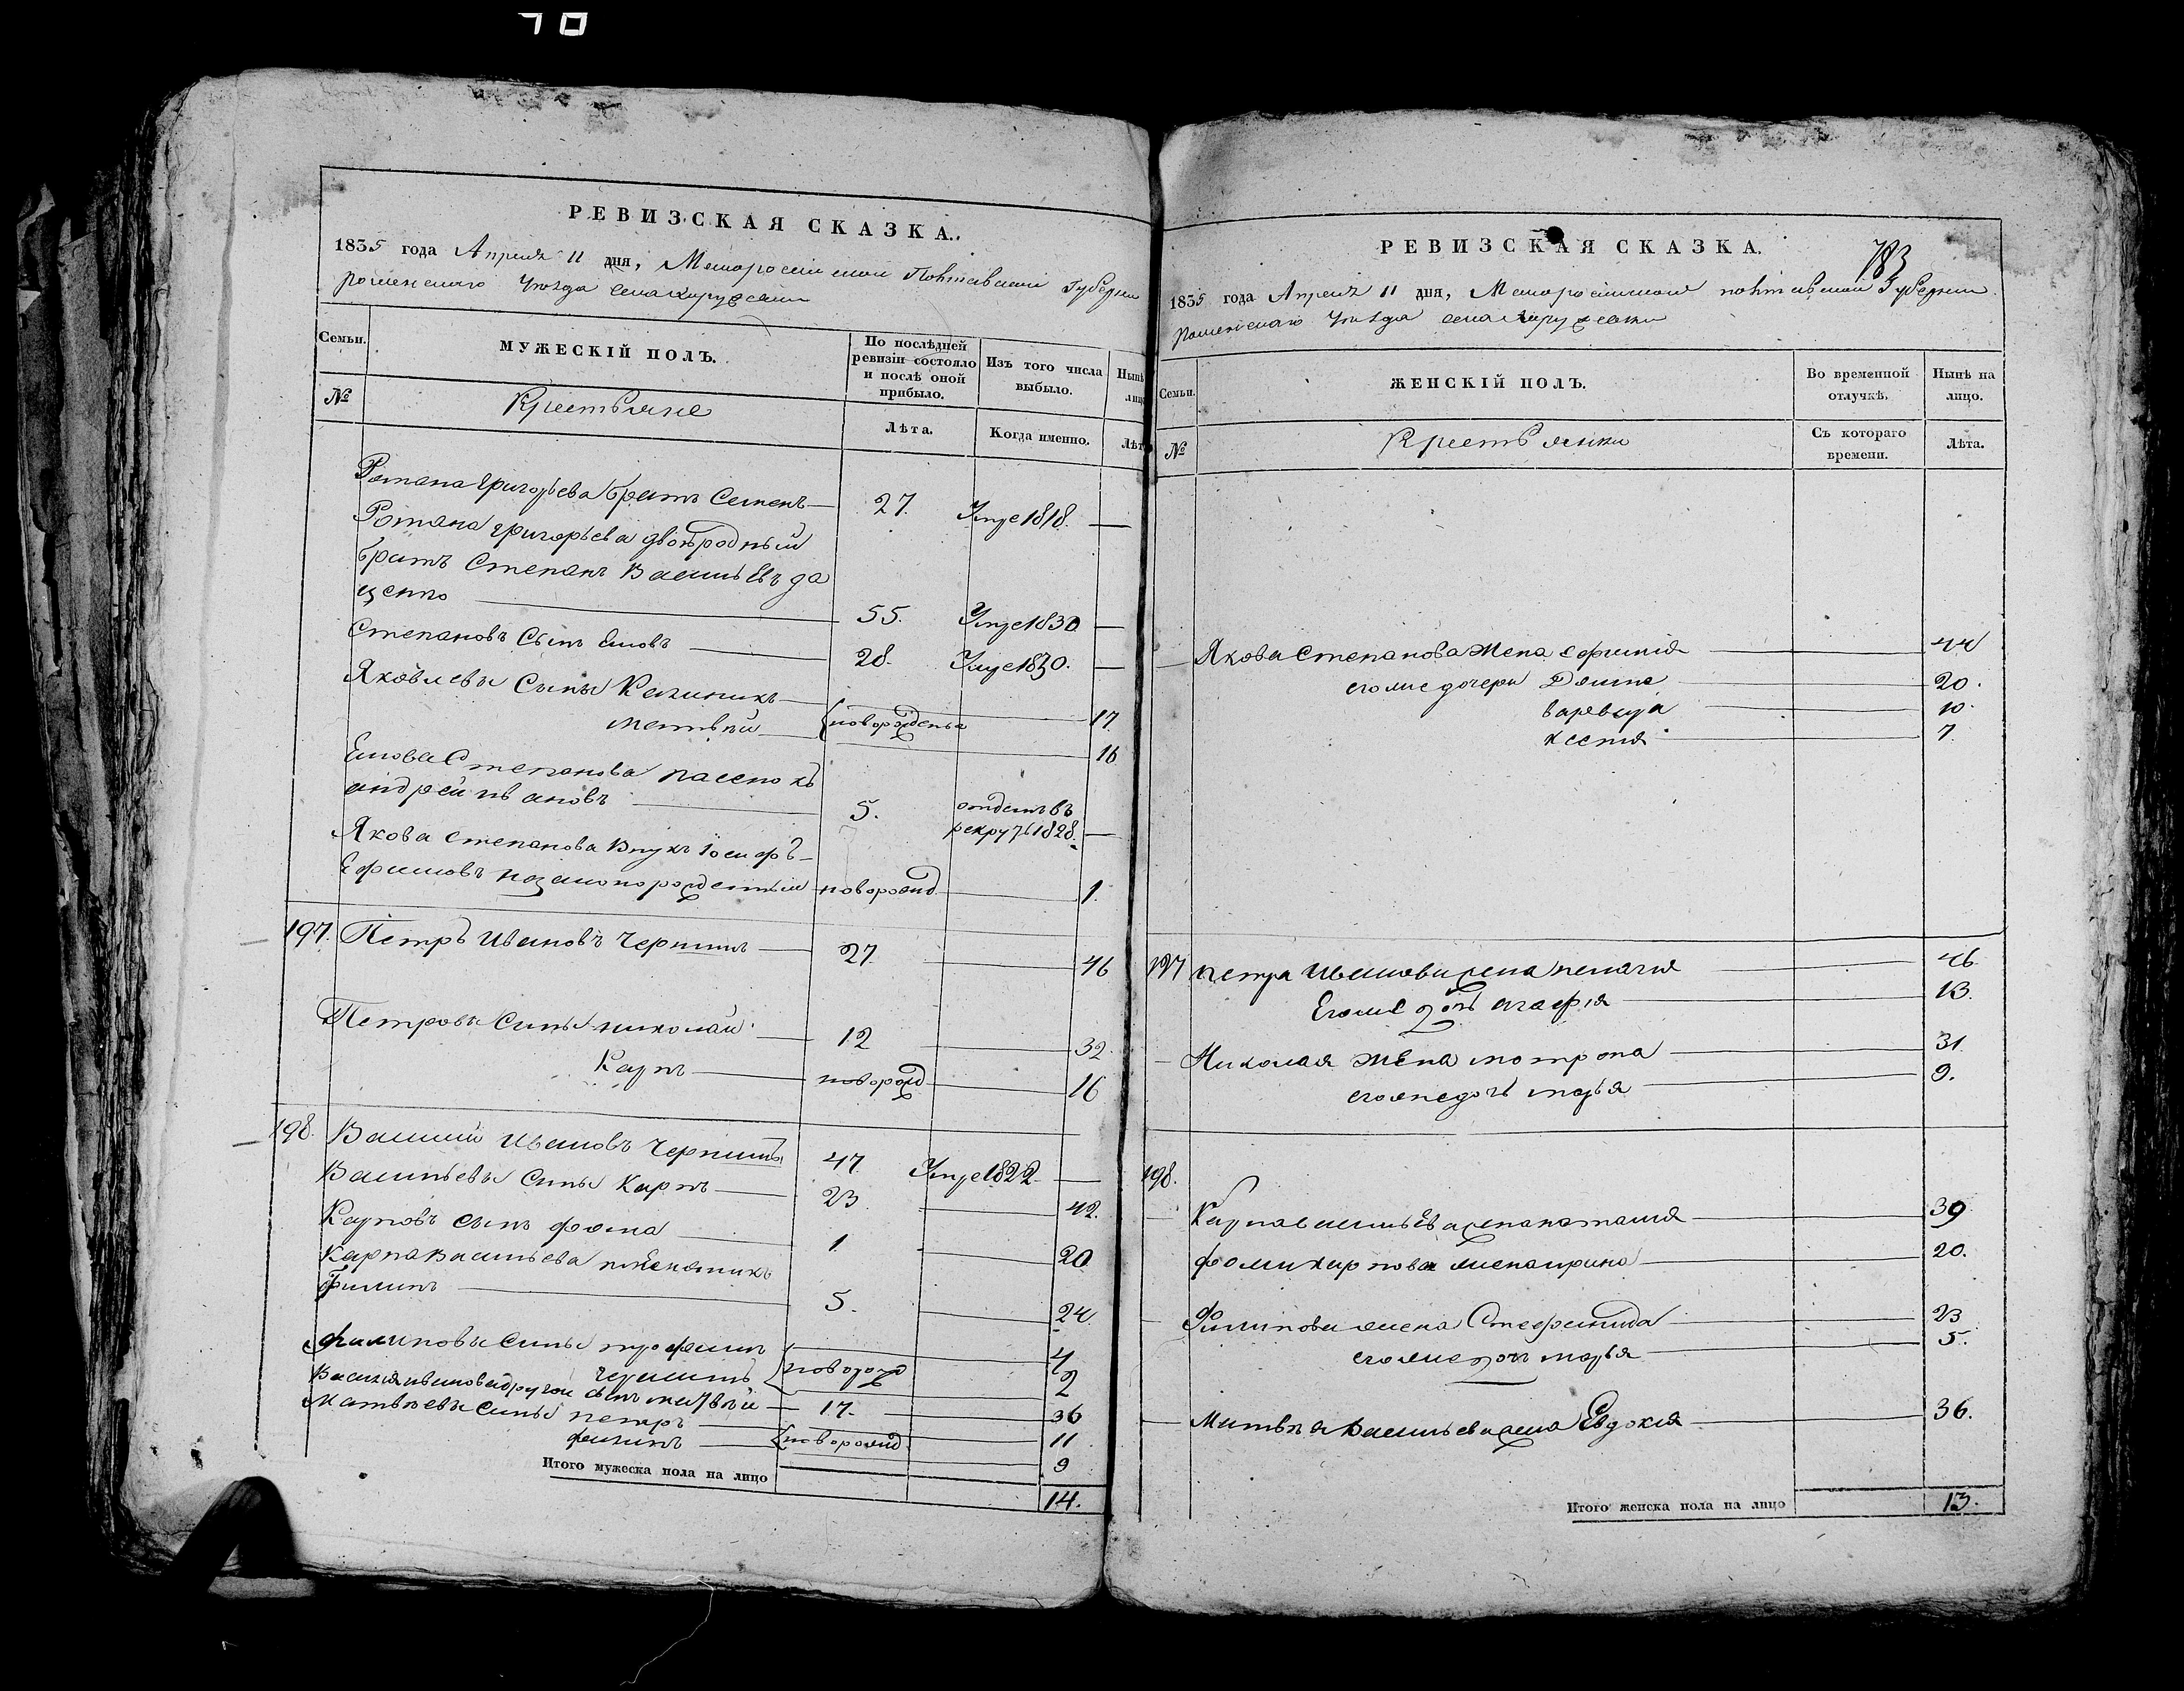 РЕВИЗСКАЯ СКАЗКА.
1835 года Апреля 11 дня, Малоросийской Полтавской Губернии
роменского уѣзда села
Семьи.
МУЖЕСКІЙ ПОЛЪ.
По послѣдней ревизіи состояло и послѣ оной прибыло.
Изъ того числа выбыло.
Нынѣ
№
Крестьяне
Лѣта.
Когда именно.
Лѣт
Романа григорьева братъ Семенъ 27. Умре 1818.
Романа григорьева двоюродный
братъ Степанъ Васильевъ да
ценко 55. Умре 1830
Степановъ Сынъ 28. Умре 1830.
Яковлевы Сыны Калиникъ 17
матвѣй новорожденые 16
Степанова пасенокъ
андрей ивановъ 5. отданъ въ
рекруты 1828.
Якова степанова Внукъ Іосифъ
Ефимовъ незаконорожденный новорожд 1.
197. Петръ Ивановъ Чернишъ 27. 46
Петровы Сины николай 12 32.
Карпъ новорожд 16
198. Василий Ивановъ Чернишъ 47. Умре 1822.
Васильевы Сины Карпъ 23 42.
Карповъ сынъ фома 1. 20
Карпа Васильева племяникъ
Филипъ 5. 24.
Филиповы сины трофимъ 4
новорожд 2
Василия иванова другой сынъ матвѣй 17. 36
Матвѣевы сины петръ 11
филипъ новорожд 9
Итого мужеска пола на лицо
14.
РЕВИЗСКАЯ СКАЗКА.
783
1835 года Апреля 11 дня, Малоросийской полтавской Губернии
роменского уѣзда села
Семьи.
ЖЕНСКІЙ ПОЛЪ.
Во временной отлучкѣ.
Нынѣ на лицо.
№
Крестьянки
Съ котораго времени.
Лѣта.
Якова степанова Жена ефимия 44
его же дочери 20.
варвара 10.
ксения 7.
197 петра Иванова жена пелагия 46
Его же дочь агафия 13.
Николая жена мотрона 31
его же дочь марья 9.
198.
Карпа васильева жена наталия 39
фомы карпова жена ирина 20.
Филипова жена Стефанида 23
его же дочь марья 5.
Матвѣя Васильева жена Евдокия 36.
Итого женска пола на лицо
13.